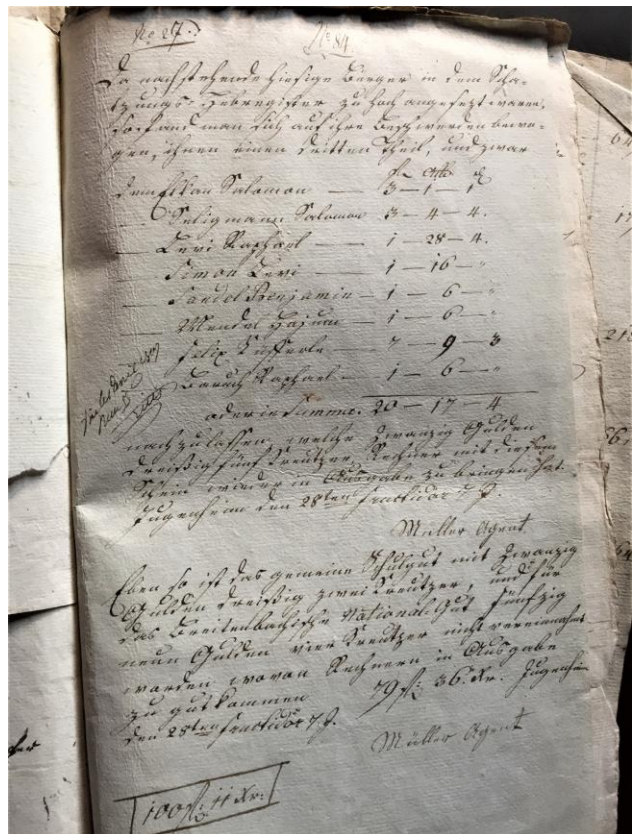 No. 27.
No. 84.
Da nachstehende hiesige Bürger in dem Scha-
tzungs-Hebregister zu hoch angesetzt waren,
so fand man sich auf ihre Beschwerden bewo-
gen, ihnen einen dritten Theil, und zwar
fl. Alb. ₰
dem Elkan Salomon — 3 — 1 — 1
— Seligmann Salomon 3 — 4 — 4.
— Levi Raphael — 1 — 28 — 4.
— Simon Levi — 1 — 16 — "
— Sandel Benjamin — 1 — 6 — "
— Mendel Hajum — 1 — 6 — "
— Felix — 7 — 9 — 3
— Baruch Raphael — 1 — 6 — "
oder in Summe. 20 — 17 — 4
nachzulassen, welche Zwanzig Gulden
Dreißig fünf Kreutzer, Rechner mit diesem
Schein wieder in Ausgabe zu bringen hat.
Jugenheim den 28ten Fructidor 7 J.
Müller Agent
Eben so ist das gemeine Schulgut mit Zwanzig
Gulden dreißig zwei Kreutzer, und für
das Breitenbachische National-Gut fünfzig
neun Gulden vier Kreutzer nicht vereinnahmt
worden wovon Rechnern in Ausgabe
zu gut kommen 79 fl. 36. Kr. Jugenheim
den 28ten Fructidor 7 J.
Müller Agent
100 fl. 11 Kr.